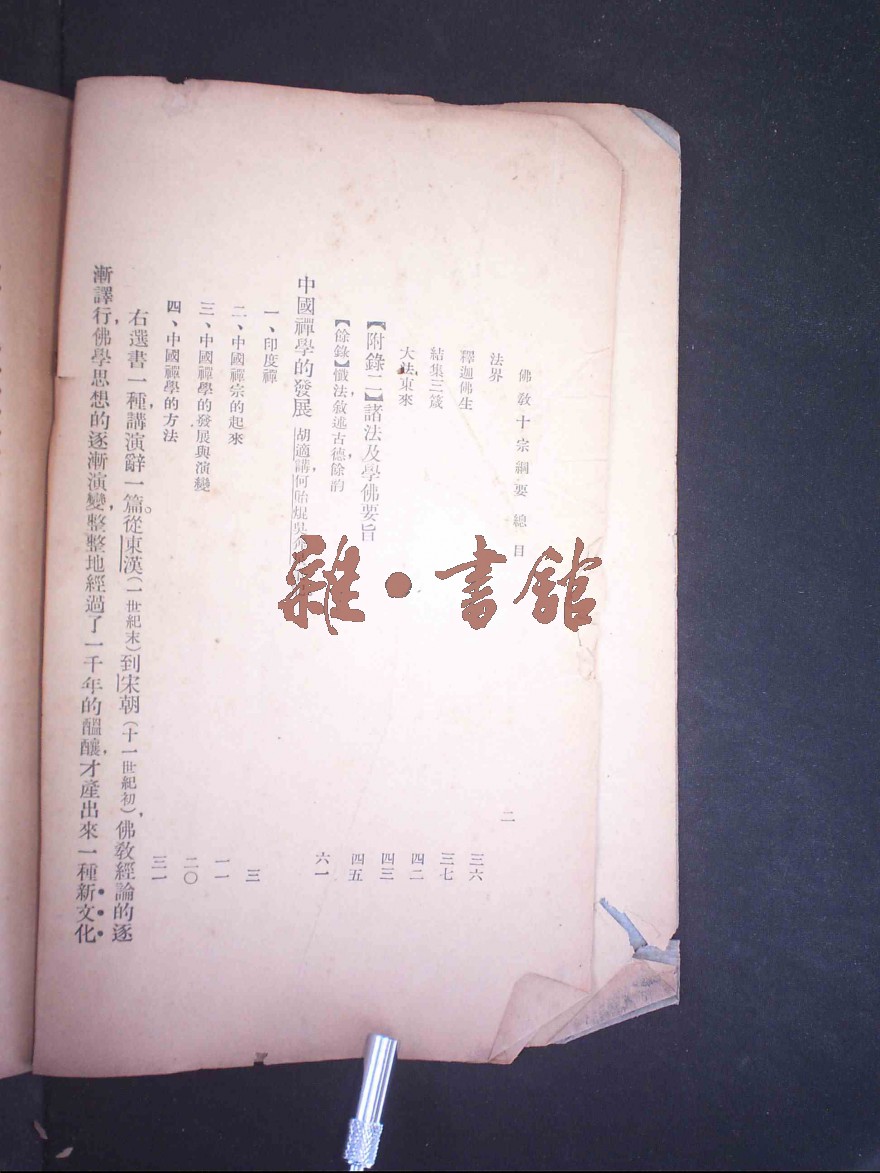 佛敎十宗綱要 總目
二
法界 三六
釋迦佛生 三七
結集三箴 四二
大法東來 四三
【附錄二】諸法及學佛要旨 四五
【餘錄】懺法，敘述古德餘韵 六一
中國禪學的發展 胡適講，何貽焜吳
一、印度禪 三
二、中國禪宗的起來 一一
三、中國禪學的發展與演變 二〇
四、中國禪學的方法 三一
右選書一種，講演辭一篇。從東漢（一世紀末）到宋朝（十一世紀初），佛敎經論的逐
漸譯行，佛學思想的逐漸演變，整整地經過了一千年的醞釀，才產出來一種新文化
雜·書館